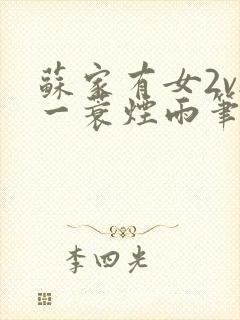 蘇家有女2v
一蓑煙雨筆
李四光